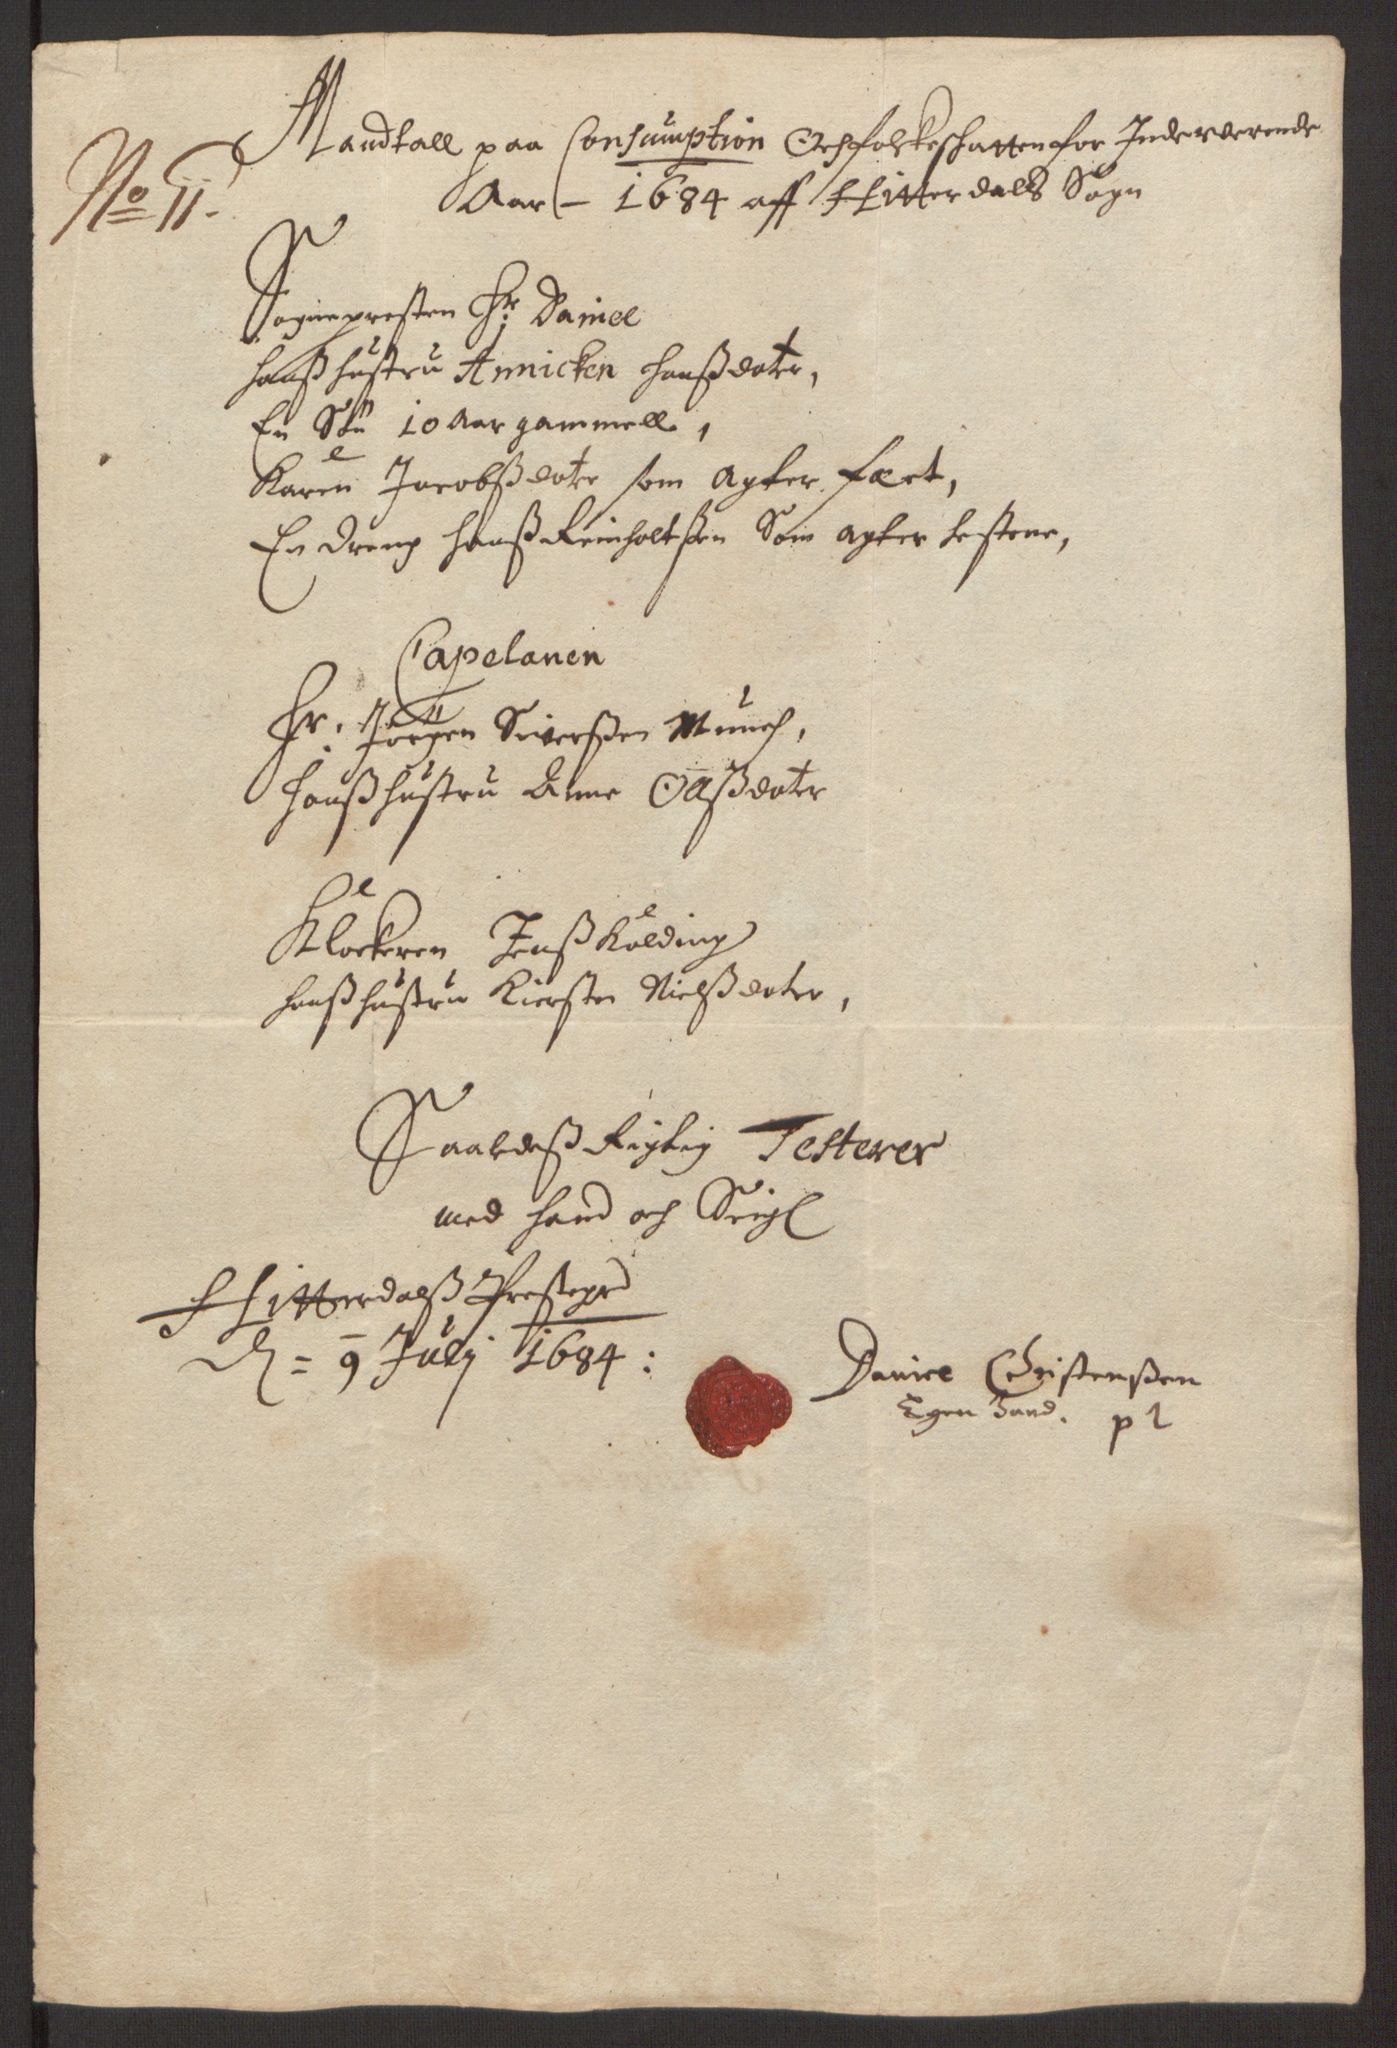 No 11.
Mandtall paa Consumption Och folckeskatten for Inderverende
Aar – 1684 aff Hitterdals Sogn
Sogneprestten Hr: Daniel
hanß hustru Annicken Hanßdoter,
En Søn 10 Aar gammell,
Karen Jacobßdoter som agter fæet,
En dreng Hanß Reinholtßen Som agter hestene,
Capelanen
Hr. Jörgen Siverßen Munch,
Hanß hustru Anne Olßdoter
Klockeren Jenß Kolding
hanß hustru Kiersten Nielßdoter,
Saaledeß Rigtig Testerer
med hand och Seigl
Hitterdalß Prestegrd
d = 9 Julij 1684:
Daniel Christenßen
Egen Hand. p l